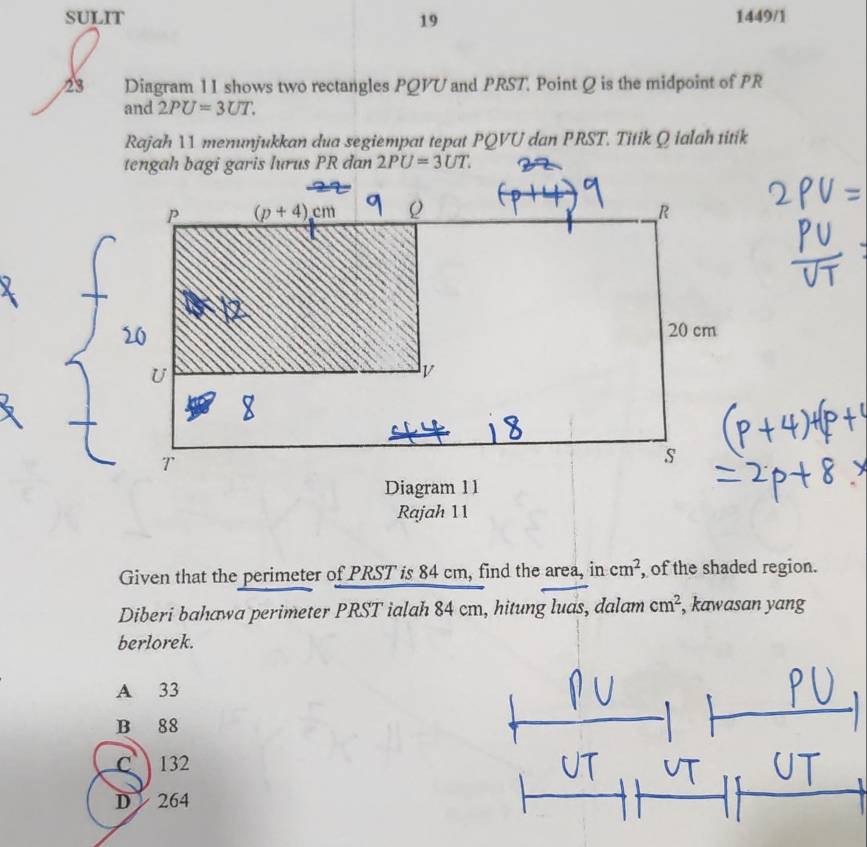 SULIT 19 1449/1
23 Diagram 11 shows two rectangles PQVU and PRST. Point Q is the midpoint of PR
and 2PU = 3UT.
Rajah 11 menunjukkan dua segiempat tepat PQVU dan PRST. Titik Q ialah titik
tengah bagi garis lurus PR dan 2PU = 3UT.
22 22
P (p + 4) cm 9 Q (p+4) 9 R
2PU =
PU
UT
12
20
20 cm
U V
8
44 18
T S
(p+4)+(p+4
= 2p+8
Diagram 11
Rajah 11
Given that the perimeter of PRST is 84 cm, find the area, in cm², of the shaded region.
Diberi bahawa perimeter PRST ialah 84 cm, hitung luas, dalam cm², kawasan yang
berlorek.
A 33
B 88
C 132
D 264
PU PU
UT UT UT